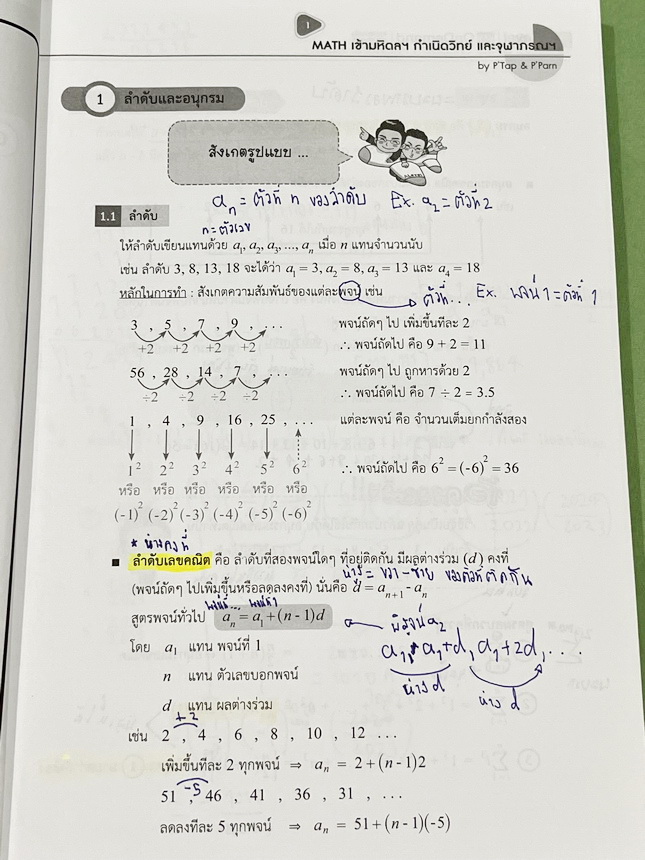 1
MATH เข้ามหิดลฯ กำเนิดวิทย์ และจุฬาภรณฯ
by P'Tap & P'Parn
1 ลำดับและอนุกรม
สังเกตรูปแบบ ...
aₙ = ตัวที่ n ของลำดับ Ex. a₂ = ตัวที่ 2
n = ตัวเลข
1.1 ลำดับ
ให้ลำดับเขียนแทนด้วย a₁, a₂, a₃, ..., aₙ เมื่อ n แทนจำนวนนับ
เช่น ลำดับ 3, 8, 13, 18 จะได้ว่า a₁ = 3, a₂ = 8, a₃ = 13 และ a₄ = 18
หลักในการทำ : สังเกตความสัมพันธ์ของแต่ละพจน์ เช่น
ตัวที่... Ex. พจน์ 1 = ตัวที่ 1
3 , 5 , 7 , 9 , ... พจน์ถัดๆ ไป เพิ่มขึ้นทีละ 2
+2 +2 +2 +2 ∴ พจน์ถัดไป คือ 9 + 2 = 11
56 , 28 , 14 , 7 , ... พจน์ถัดๆ ไป ถูกหารด้วย 2
÷2 ÷2 ÷2 ÷2 ∴ พจน์ถัดไป คือ 7 ÷ 2 = 3.5
1 , 4 , 9 , 16 , 25 , ... แต่ละพจน์ คือ จำนวนเต็มยกกำลังสอง
1² 2² 3² 4² 5² 6² ∴ พจน์ถัดไป คือ 6² = (-6)² = 36
หรือ หรือ หรือ หรือ หรือ หรือ
(-1)² (-2)² (-3)² (-4)² (-5)² (-6)²
* ห่างคงที่
■ ลำดับเลขคณิต คือ ลำดับที่สองพจน์ใดๆ ที่อยู่ติดกัน มีผลต่างร่วม (d) คงที่
ห่าง = ขวา - ซ้าย ของตัวที่ติดกัน
(พจน์ถัดๆ ไปเพิ่มขึ้นหรือลดลงคงที่) นั่นคือ d = aₙ₊₁ - aₙ
สูตรพจน์ทั่วไป aₙ = a₁ + (n - 1)d
a₁, a₁+d, a₁+2d, ...
ห่าง d ห่าง d
โดย a₁ แทน พจน์ที่ 1
n แทน ตัวเลขบอกพจน์
d แทน ผลต่างร่วม
+2
เช่น 2 , 4 , 6 , 8 , 10 , 12 ...
เพิ่มขึ้นทีละ 2 ทุกพจน์ ⇒ aₙ = 2 + (n - 1)2
-5
51 , 46 , 41 , 36 , 31 , ...
ลดลงทีละ 5 ทุกพจน์ ⇒ aₙ = 51 + (n - 1)(-5)